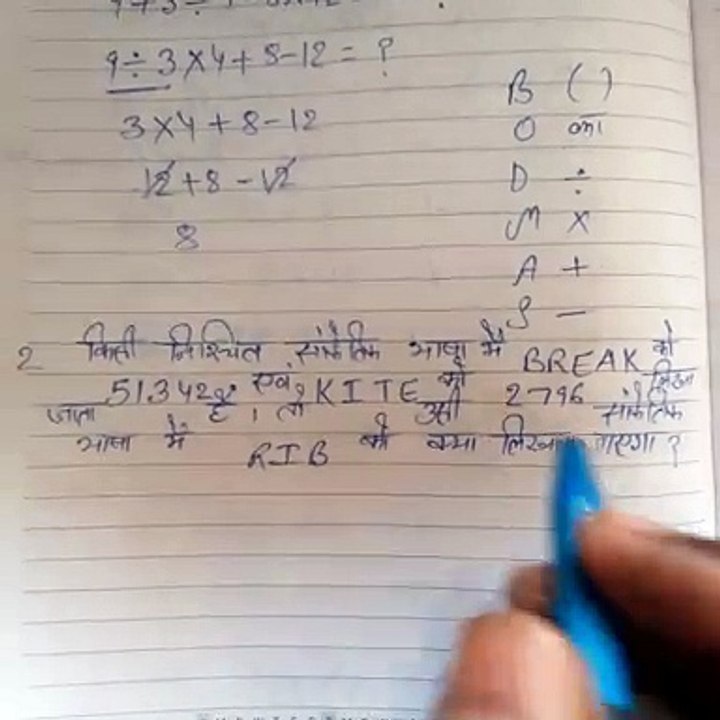 9 ÷ 3 × 4 + 8 - 12 = ?
3 × 4 + 8 - 12
12 + 8 - 12
8
B ( )
O का
D ÷
M ×
A +
S -
2 किसी निश्चित सांकेतिक भाषा में BREAK को
51342 एवं KITE को 2796 लिखा
जाता है । तो उसी सांकेतिक
भाषा में RIB को क्या लिखा जाएगा ?